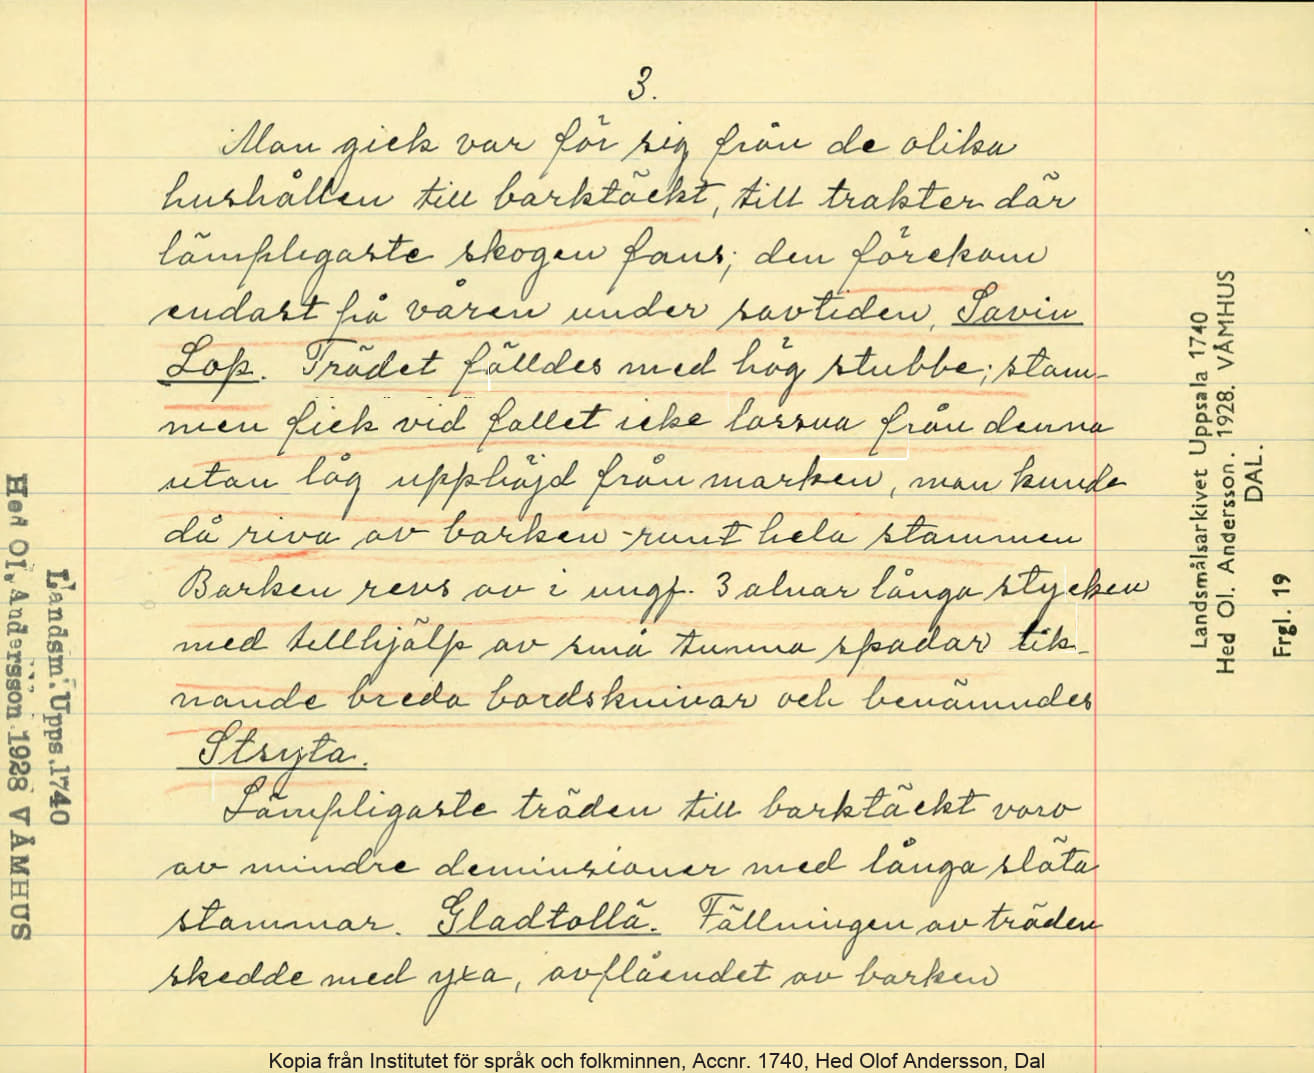 3.
Man gick var för sig från de olika
hushållen till barktäckt, till trakter där
lämpligaste skogen fans; den förekom
endast på våren under savtiden, Savin
Lop. Trädet fälldes med hög stubbe; stam-
men fick vid fallet icke lossna från denna
utan låg upphöjd från marken, man kunde
då riva av barken runt hela stammen
Barken revs av i ungf. 3 alnar långa stycken
med tillhjälp av små tunna spadar lik-
nande breda bordsknivar och benämndes
Stryta.
Lämpligaste träden till barktäckt voro
av mindre deminsioner med långa släta
stammar. Gladtollä. Fällningen av träden
skedde med yxa, avflåendet av barken
Landsmålsarkivet Uppsala 1740
Hed Ol. Andersson. 1928. VÅMHUS
DAL.
Frgl. 19
Landsm. Upps. 1740
Hed Ol. Andersson 1928 VÅMHUS
Kopia från Institutet för språk och folkminnen, Accnr. 1740, Hed Olof Andersson, Dal